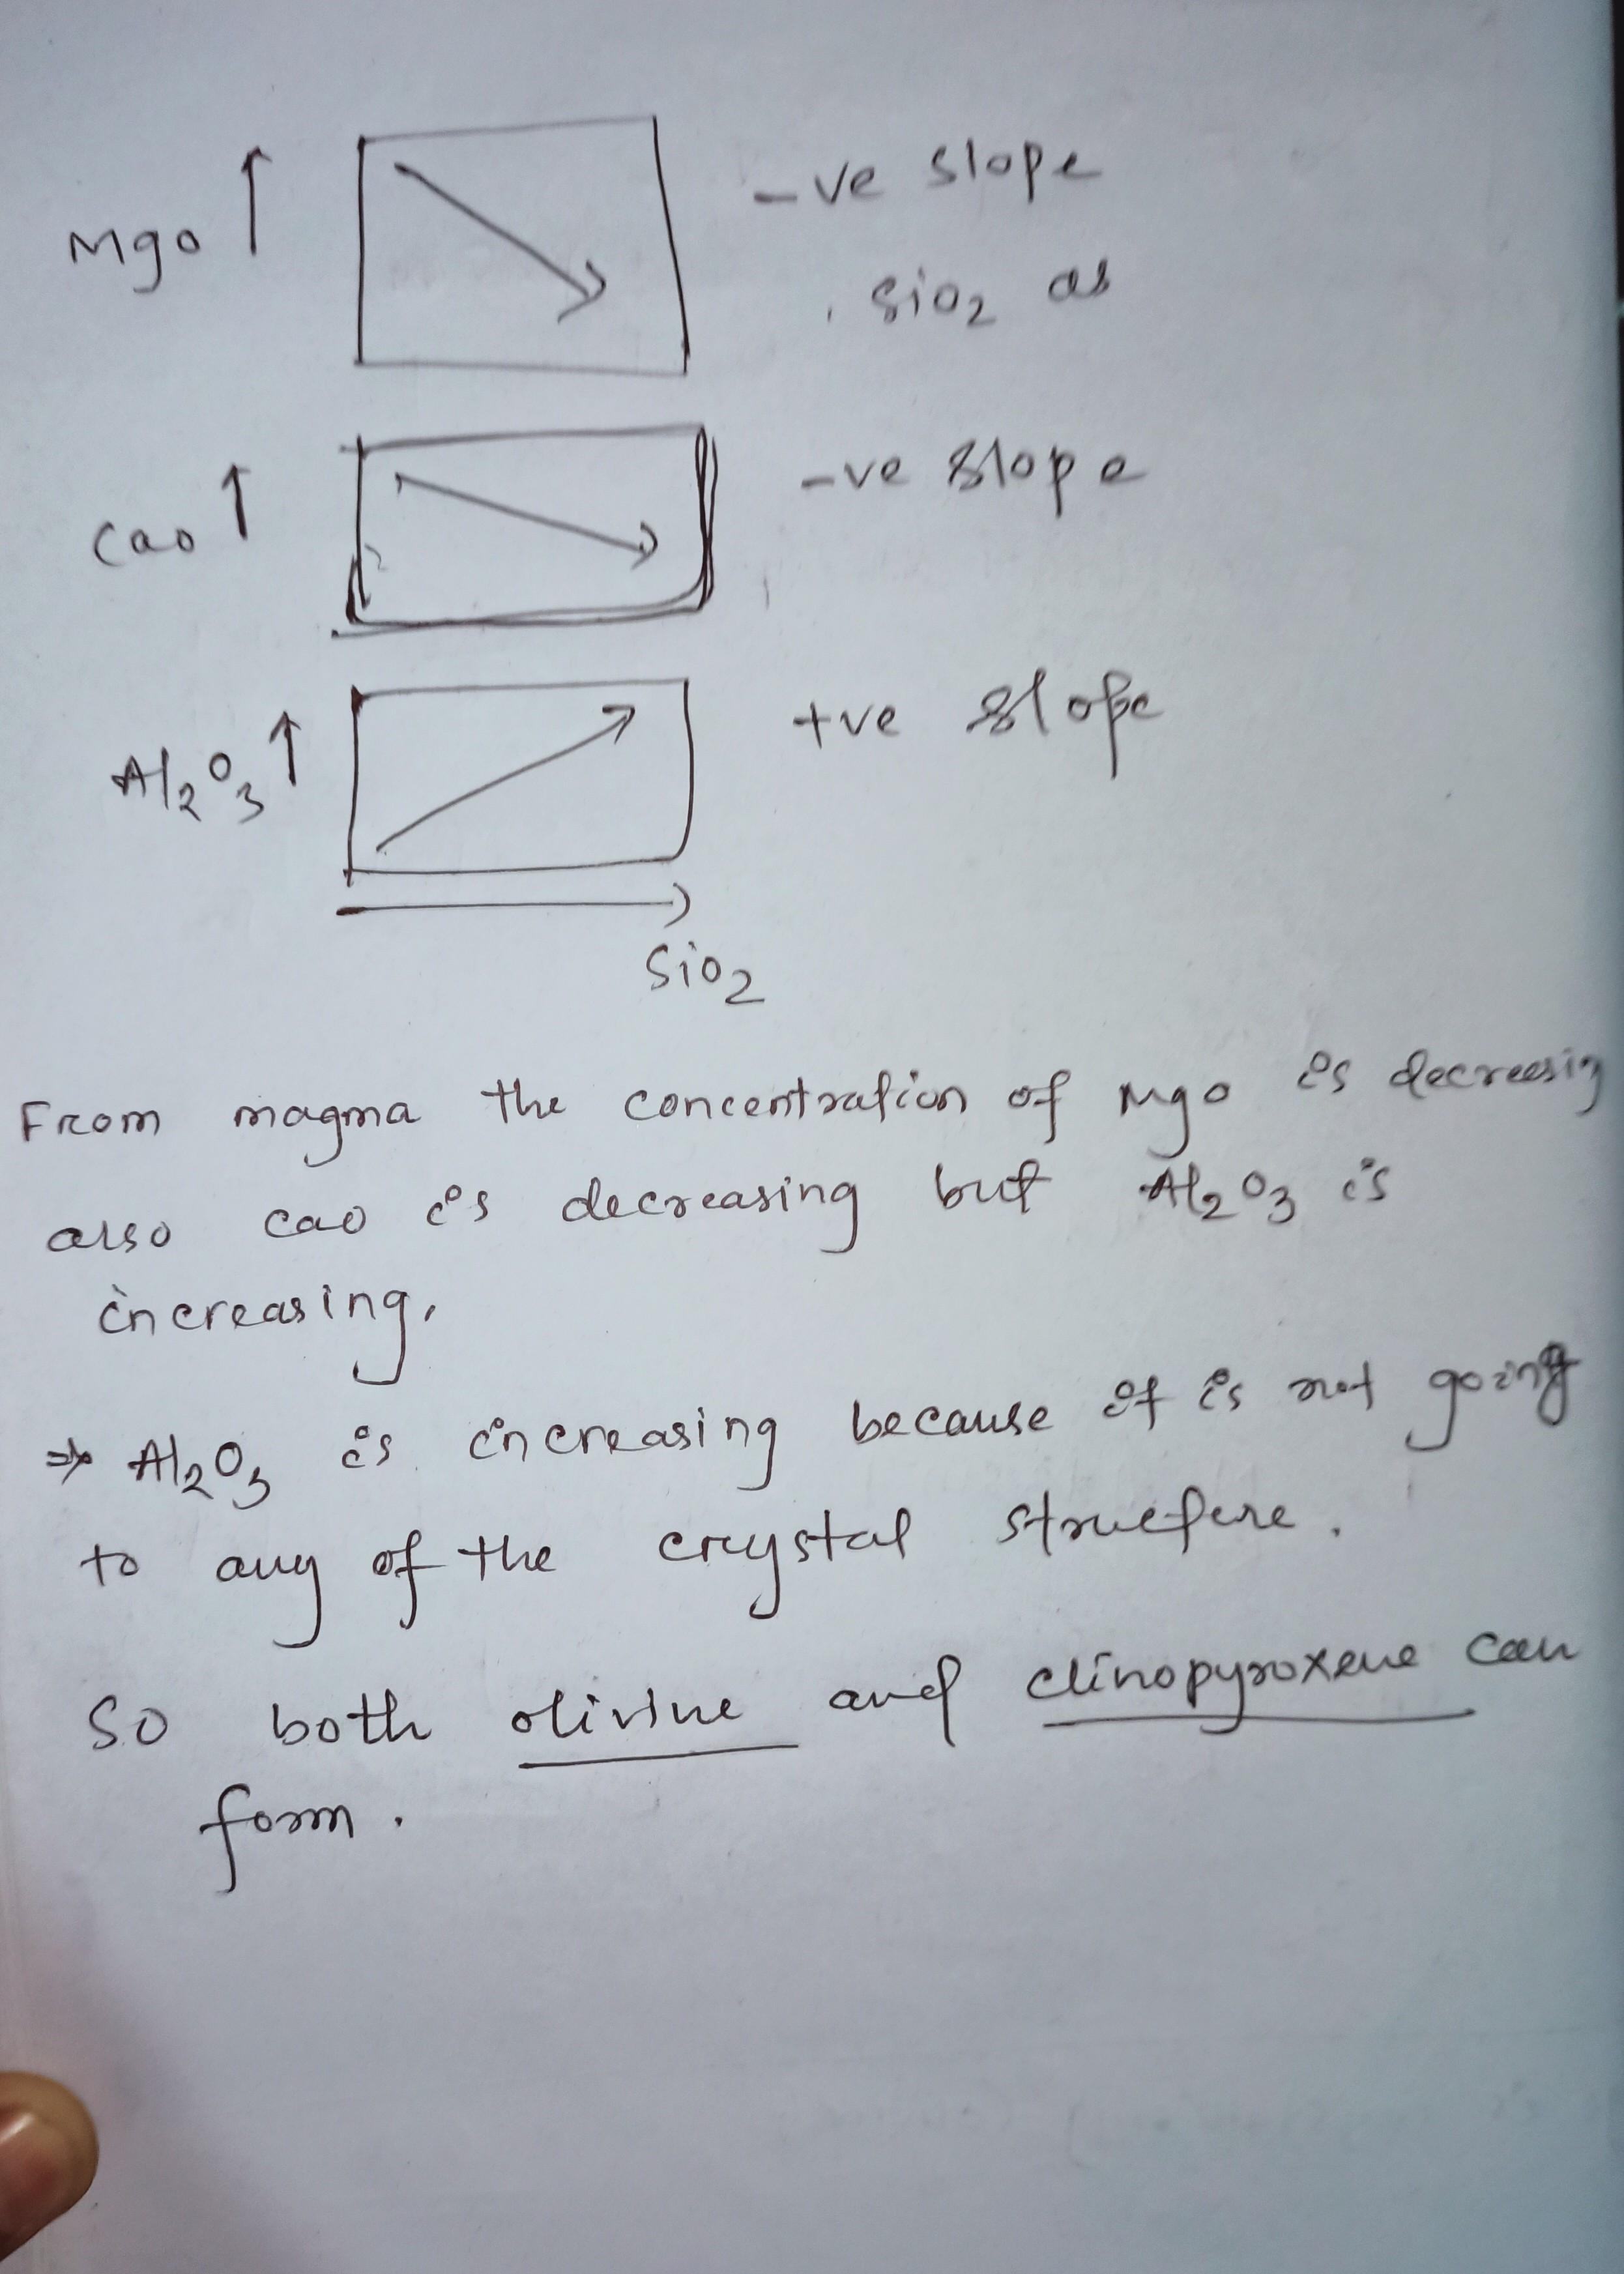 Mgo ↑ -ve slope
, Sio2 as
Cao ↑ -ve slope
Al2O3 ↑ +ve slope
Sio2
From magma the concentration of Mgo is decreesing
also cao is decreasing but Al2O3 is
increasing,
⇒ Al2O3 is increasing because it is not going
to any of the crystal structure.
So both olivine and clinopyroxene can
form.